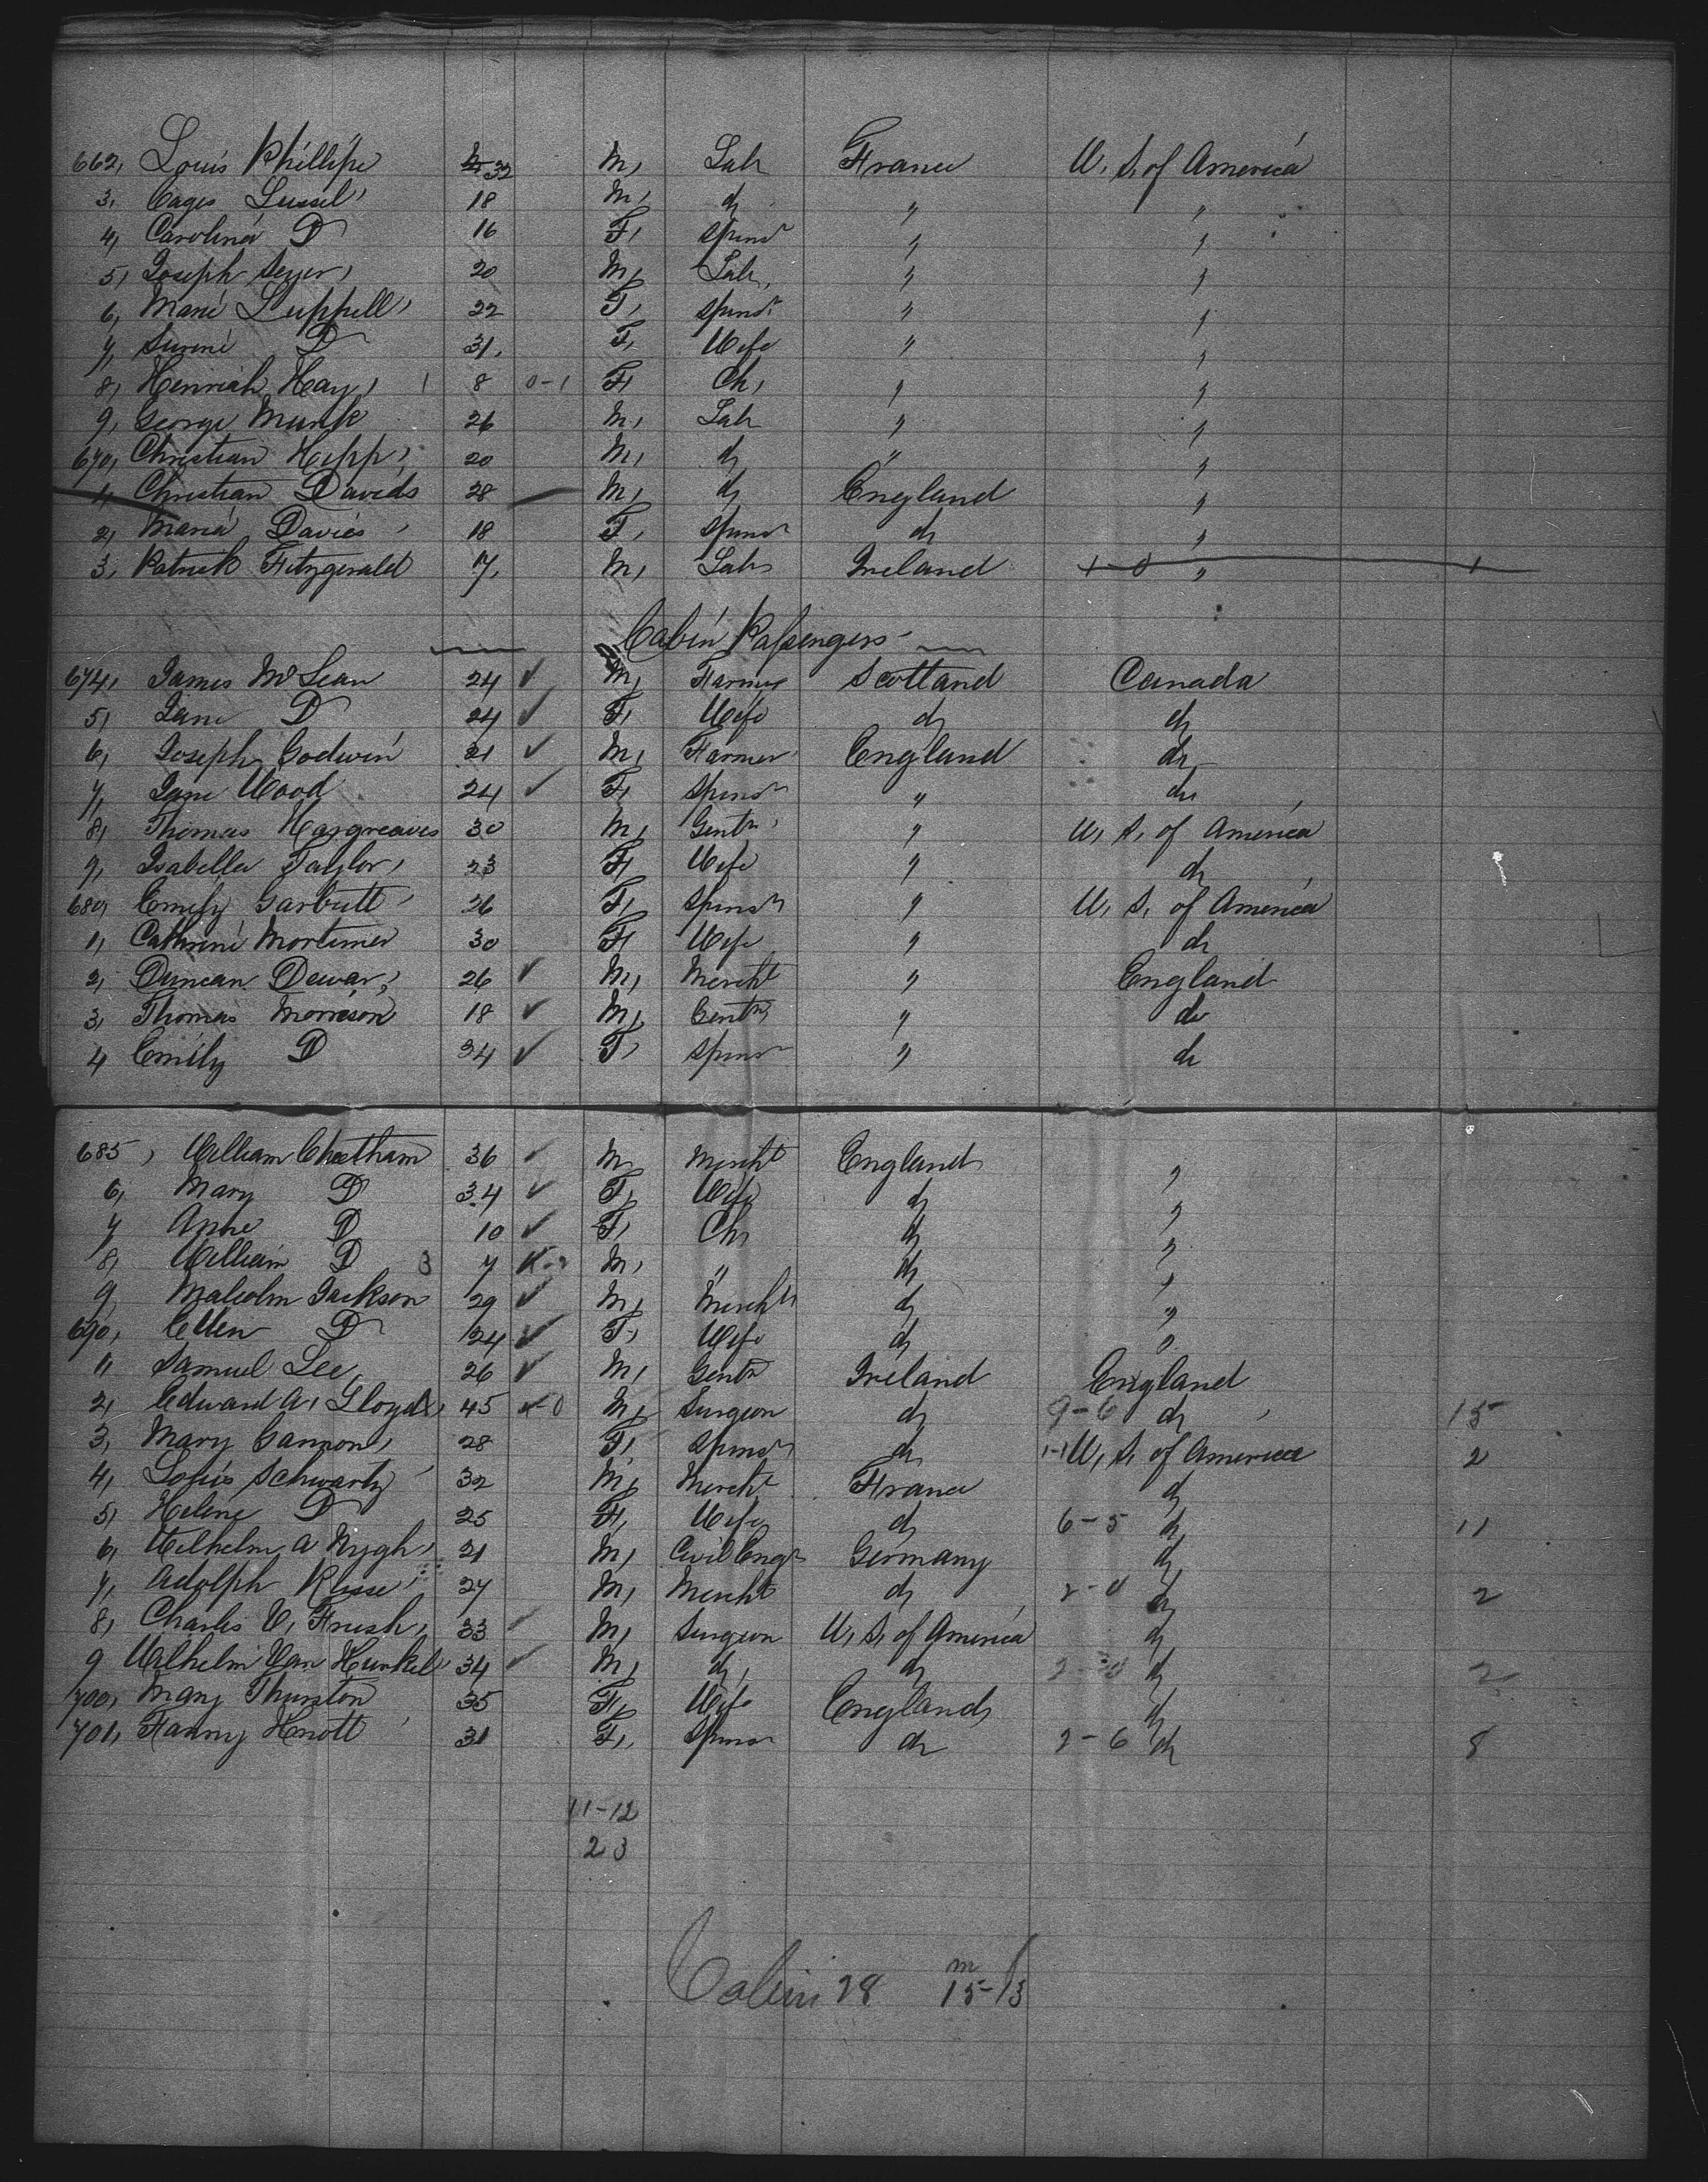 662, Louis Phillipe 32 M, Lab France U. S. of America
3, Cages Lussel, 18 M, do " "
4, Carolina D 16 F, Spinsr " "
5, Joseph 20 M, Lab, " "
6, Marie Luppell, 22 F, Spinsr " "
7, D 31, F, Wife " "
8, Henriah Hay, 1 8 0-1 F, Ch, " "
9, George Munk 26 M, Lab " "
670, Christian Hopp, 20 M, do " "
1, Christian Davids 28 M, do England "
2, Maria Davies 18 F, Spinsr do "
3, Patrick Fitzgerald 17, M, Lab Ireland 1-0 " 1
Cabin Passengers
674, James McLean 24 ✓ M, Farmer Scotland Canada
5, Jane D 24 ✓ F, Wife do do
6, Joseph Godwin 21 ✓ M, Farmer England do
7, Jane Wood 24 ✓ F, Spinsr " do
8, Thomas Hargreaves 30 M, Gentn " U. S. of America
9, Isabella Taylor, 23 F, Wife " do
680, Emily Garbutt 26 F, Spinsr " U. S. of America
1, Cathrine Mortimer 30 F, Wife " do
2, Duncan Dewar, 26 ✓ M, Mercht " England
3, Thomas Morrison 18 ✓ M, Gentn " do
4 Emily D 34 ✓ F, Spinsr " do
685, William Cheetham 36 ✓ M Mercht England "
6, Mary D 34 ✓ F, Wife do "
7 Anne D 10 ✓ F, Ch, do "
8, William D 3 7 M, " do "
9 Malcolm Jackson 29 ✓ M, Mercht do "
690, Ellen D 24 ✓ F, Wife do "
1, Samuel Lee, 26 ✓ M, Gentn Ireland England
2, Edward A, Lloyd, 45 M, Surgeon do 9-6 do 15
3, Mary Cannon, 28 F, Spinsr do 1-1 U. S. of America 2
4, Louis Schwartz 32 M, Mercht France do
5, Helene D 25 F, Wife do 6-5 do 11
6, Wilhelm A Nygh, 21 M, Civil Engr Germany do
7, Adolph Risse 27 M, Mercht do 2-0 do 2
8, Charles V, Frush, 33 ✓ M, Surgeon U. S. of America do
9 Wilhelm Van Hunkel 34 ✓ M, do, do 2-0 do 2
700, Mary Thurston 35 F, Wife England do
701, Fanny Knott 31 F, Spinsr do 2-6 do 8
11-12
23
Cabin 28 m 15-13